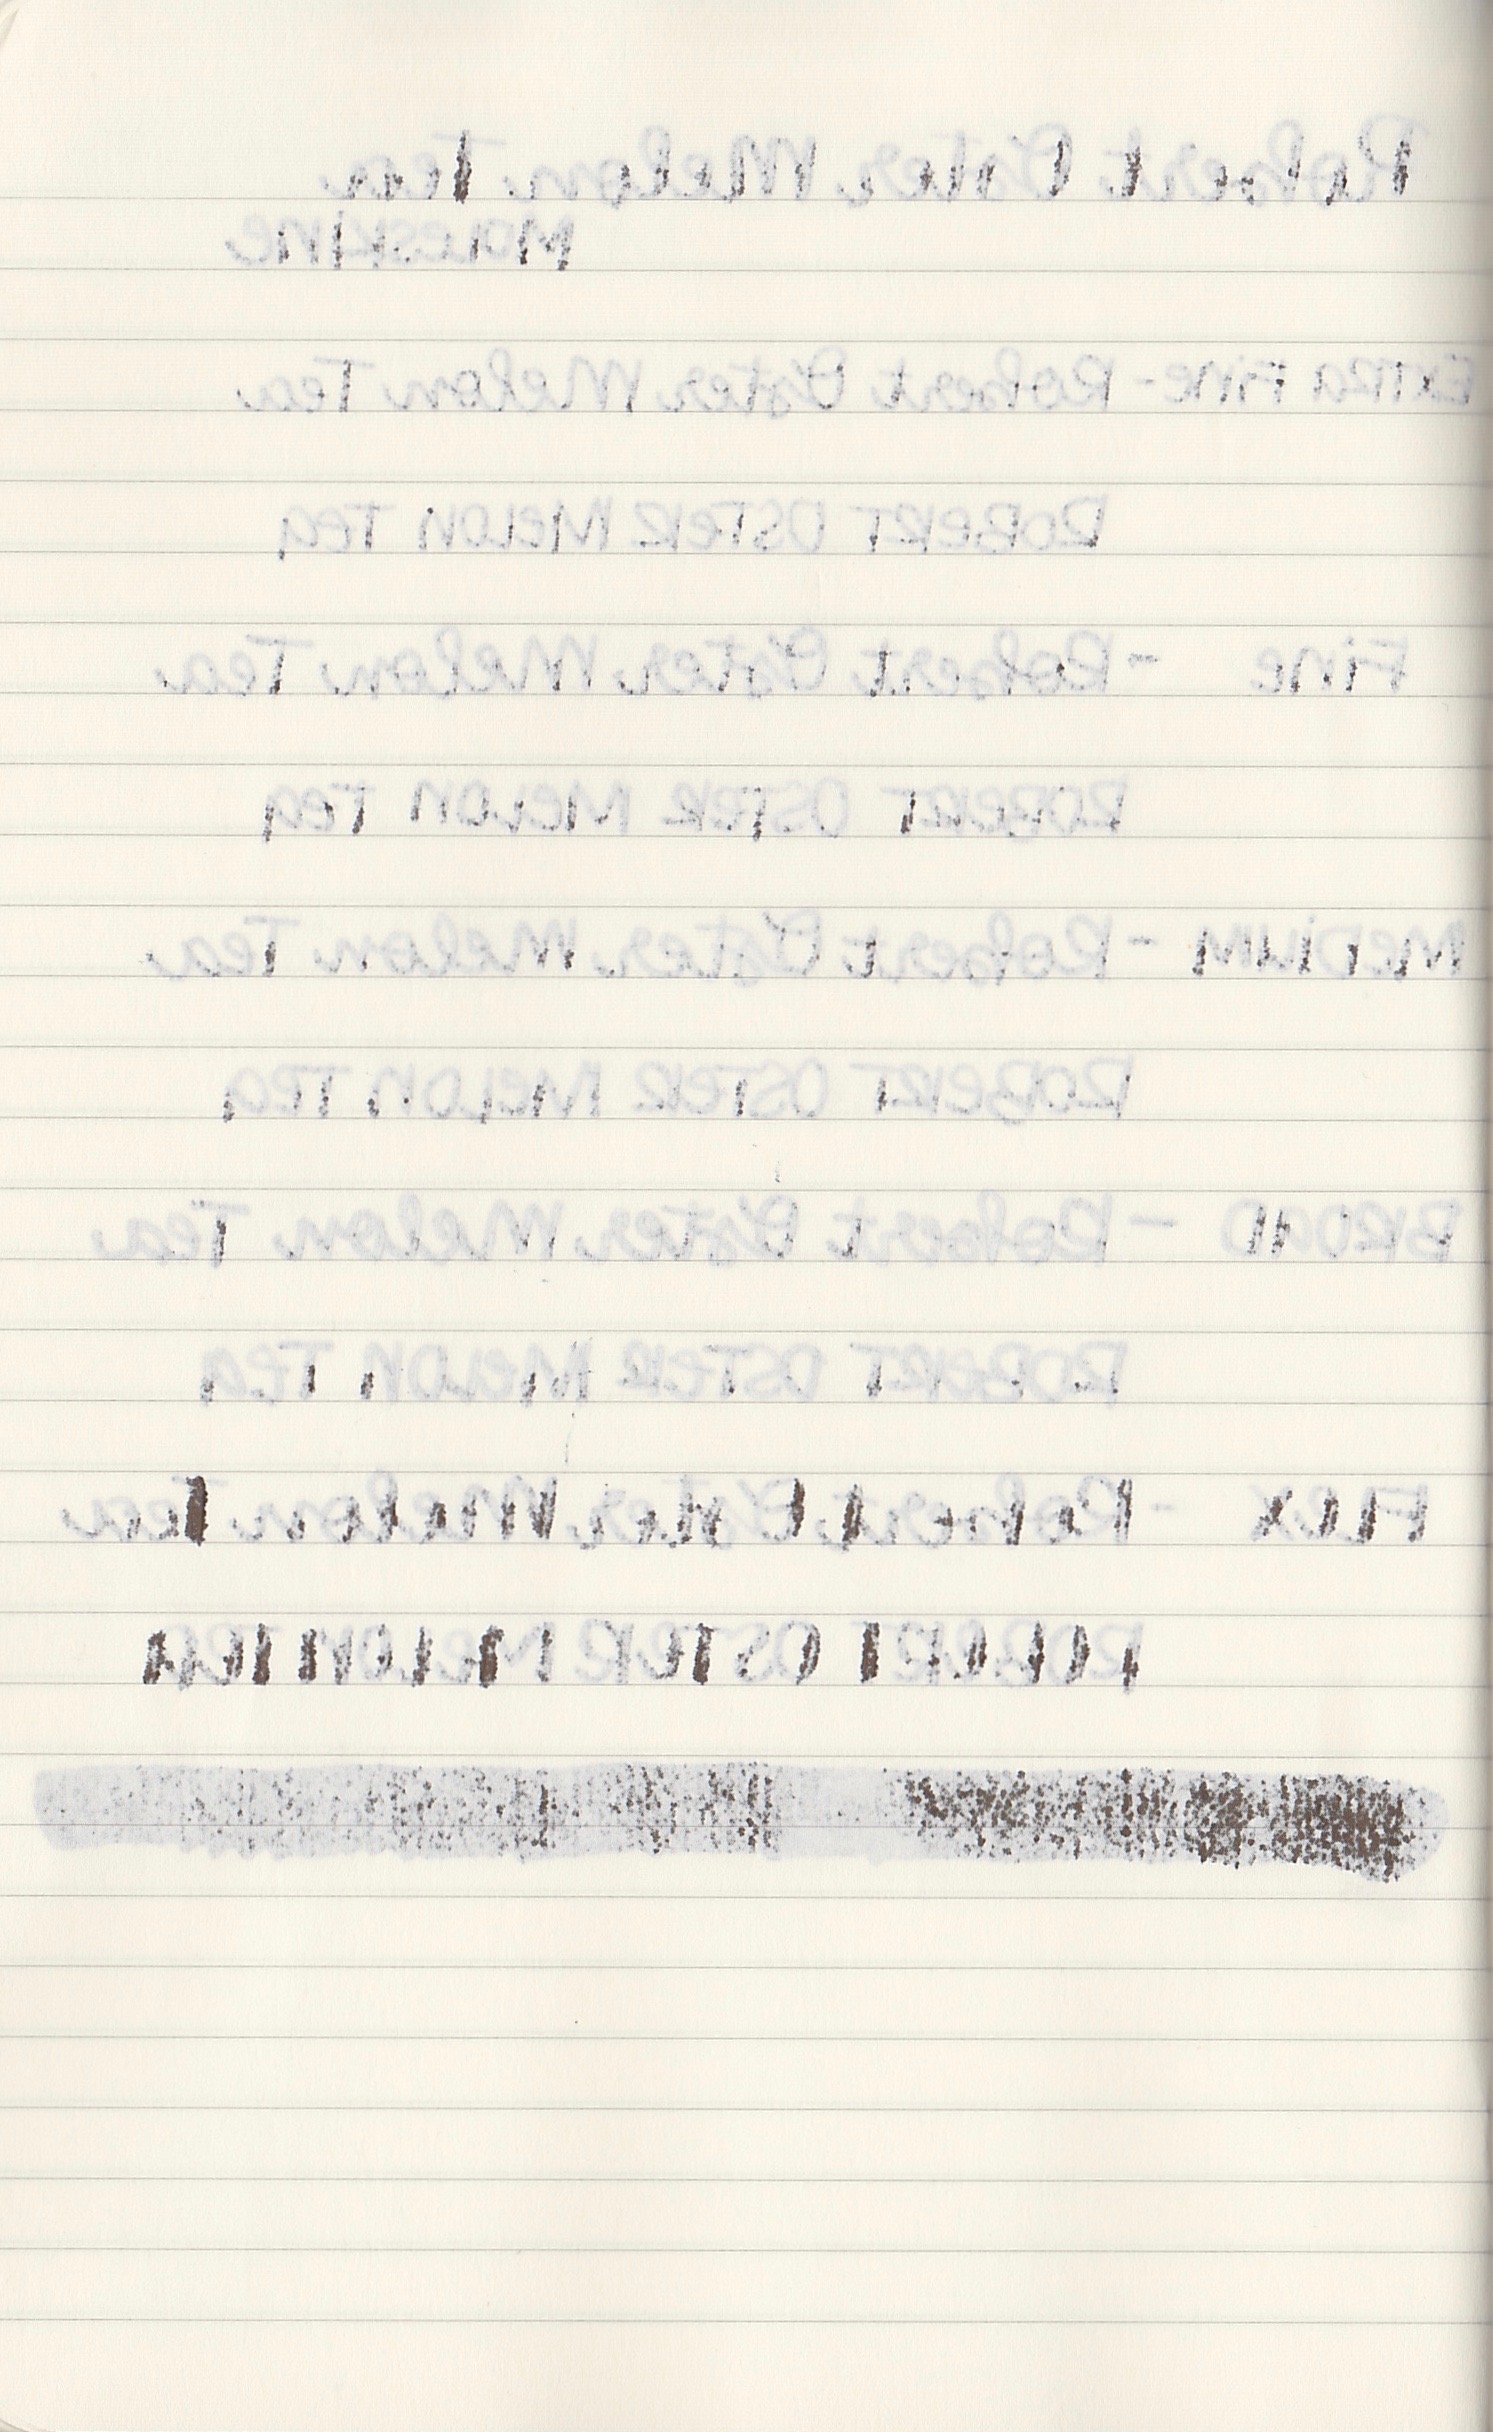 Robert Oster Melon Tea
MOLESKINE
EXTRA FINE - Robert Oster Melon Tea
ROBERT OSTER MELON TEA
FINE - Robert Oster Melon Tea
ROBERT OSTER MELON TEA
MEDIUM - Robert Oster Melon Tea
ROBERT OSTER MELON TEA
BROAD - Robert Oster Melon Tea
ROBERT OSTER MELON TEA
FLEX - Robert Oster Melon Tea
ROBERT OSTER MELON TEA